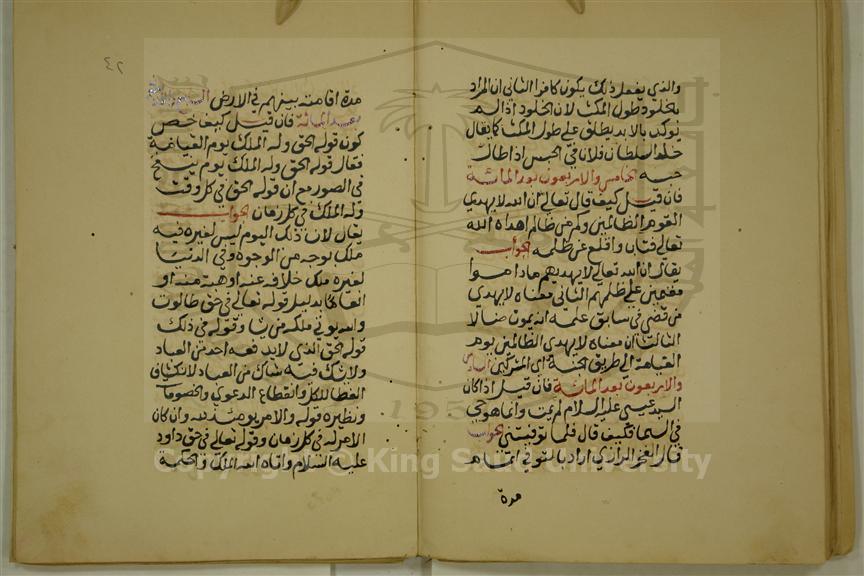 والذي يفعل ذلك يكون كافرا الثاني ان المراد
بالخلود طول المكث لان الخلود اذا لم
يوكد بالابد يطلق على طول المكث كما يقال
خلد السلطان فلانا في الحبس اذا طال
حبسه الخامس والاربعون بعد المائة
فان قيل كيف قال تعالى ان الله لا يهدي
القوم الظالمين وكم من ظالم هداه الله
تعالى فتاب واقلع عن ظلمه الجواب
يقال ان الله تعالى لا يهديهم ما داموا
مقيمين على ظلمهم الثاني معناه لا يهدي
من قضي في سابق علمه انه يموت ضالا
الثالث ان معناه لا يهدي الظالمين يوم
القيامة الى طريق الجنة اي المشركين السادس
والاربعون بعد المائة فان قيل اذا كان
السيد عيسى عليه السلام لم يمت وانما هو حي
في السما فكيف قال فلما توفيتني الجواب
قال الفخر الرازي اراد بالتوفي اتمام
مدة
٤٢
مدة اقامته بينهم في الارض السابع والاربعون
بعد المائة فان قيل كيف خص
كون قوله الحق وله الملك يوم القيامة
فقال قوله الحق وله الملك يوم ينفخ
في الصور مع ان قوله الحق في كل وقت
وله الملك في كل زمان الجواب
يقال لان ذلك اليوم ليس لغيره فيه
ملك بوجه من الوجوه وفي الدنيا
لغيره ملك خلافه عنه او هبة منه او
انعاما بدليل قوله تعالى في حق طالوت
والله يوتي ملكه من يشا وقوله في ذلك
قوله الحق الذي لا يدفعه احد من العباد
ولا يشك فيه شاك من العباد لانكشاف
الغطا للكل وانقطاع الدعوى والخصومات
ونظيره قوله والامر يومئذ لله وان كان
الامر له في كل زمان وقوله تعالى في حق داود
عليه السلام واتاه الله الملك والحكمة
Copyright © King Saud University
195